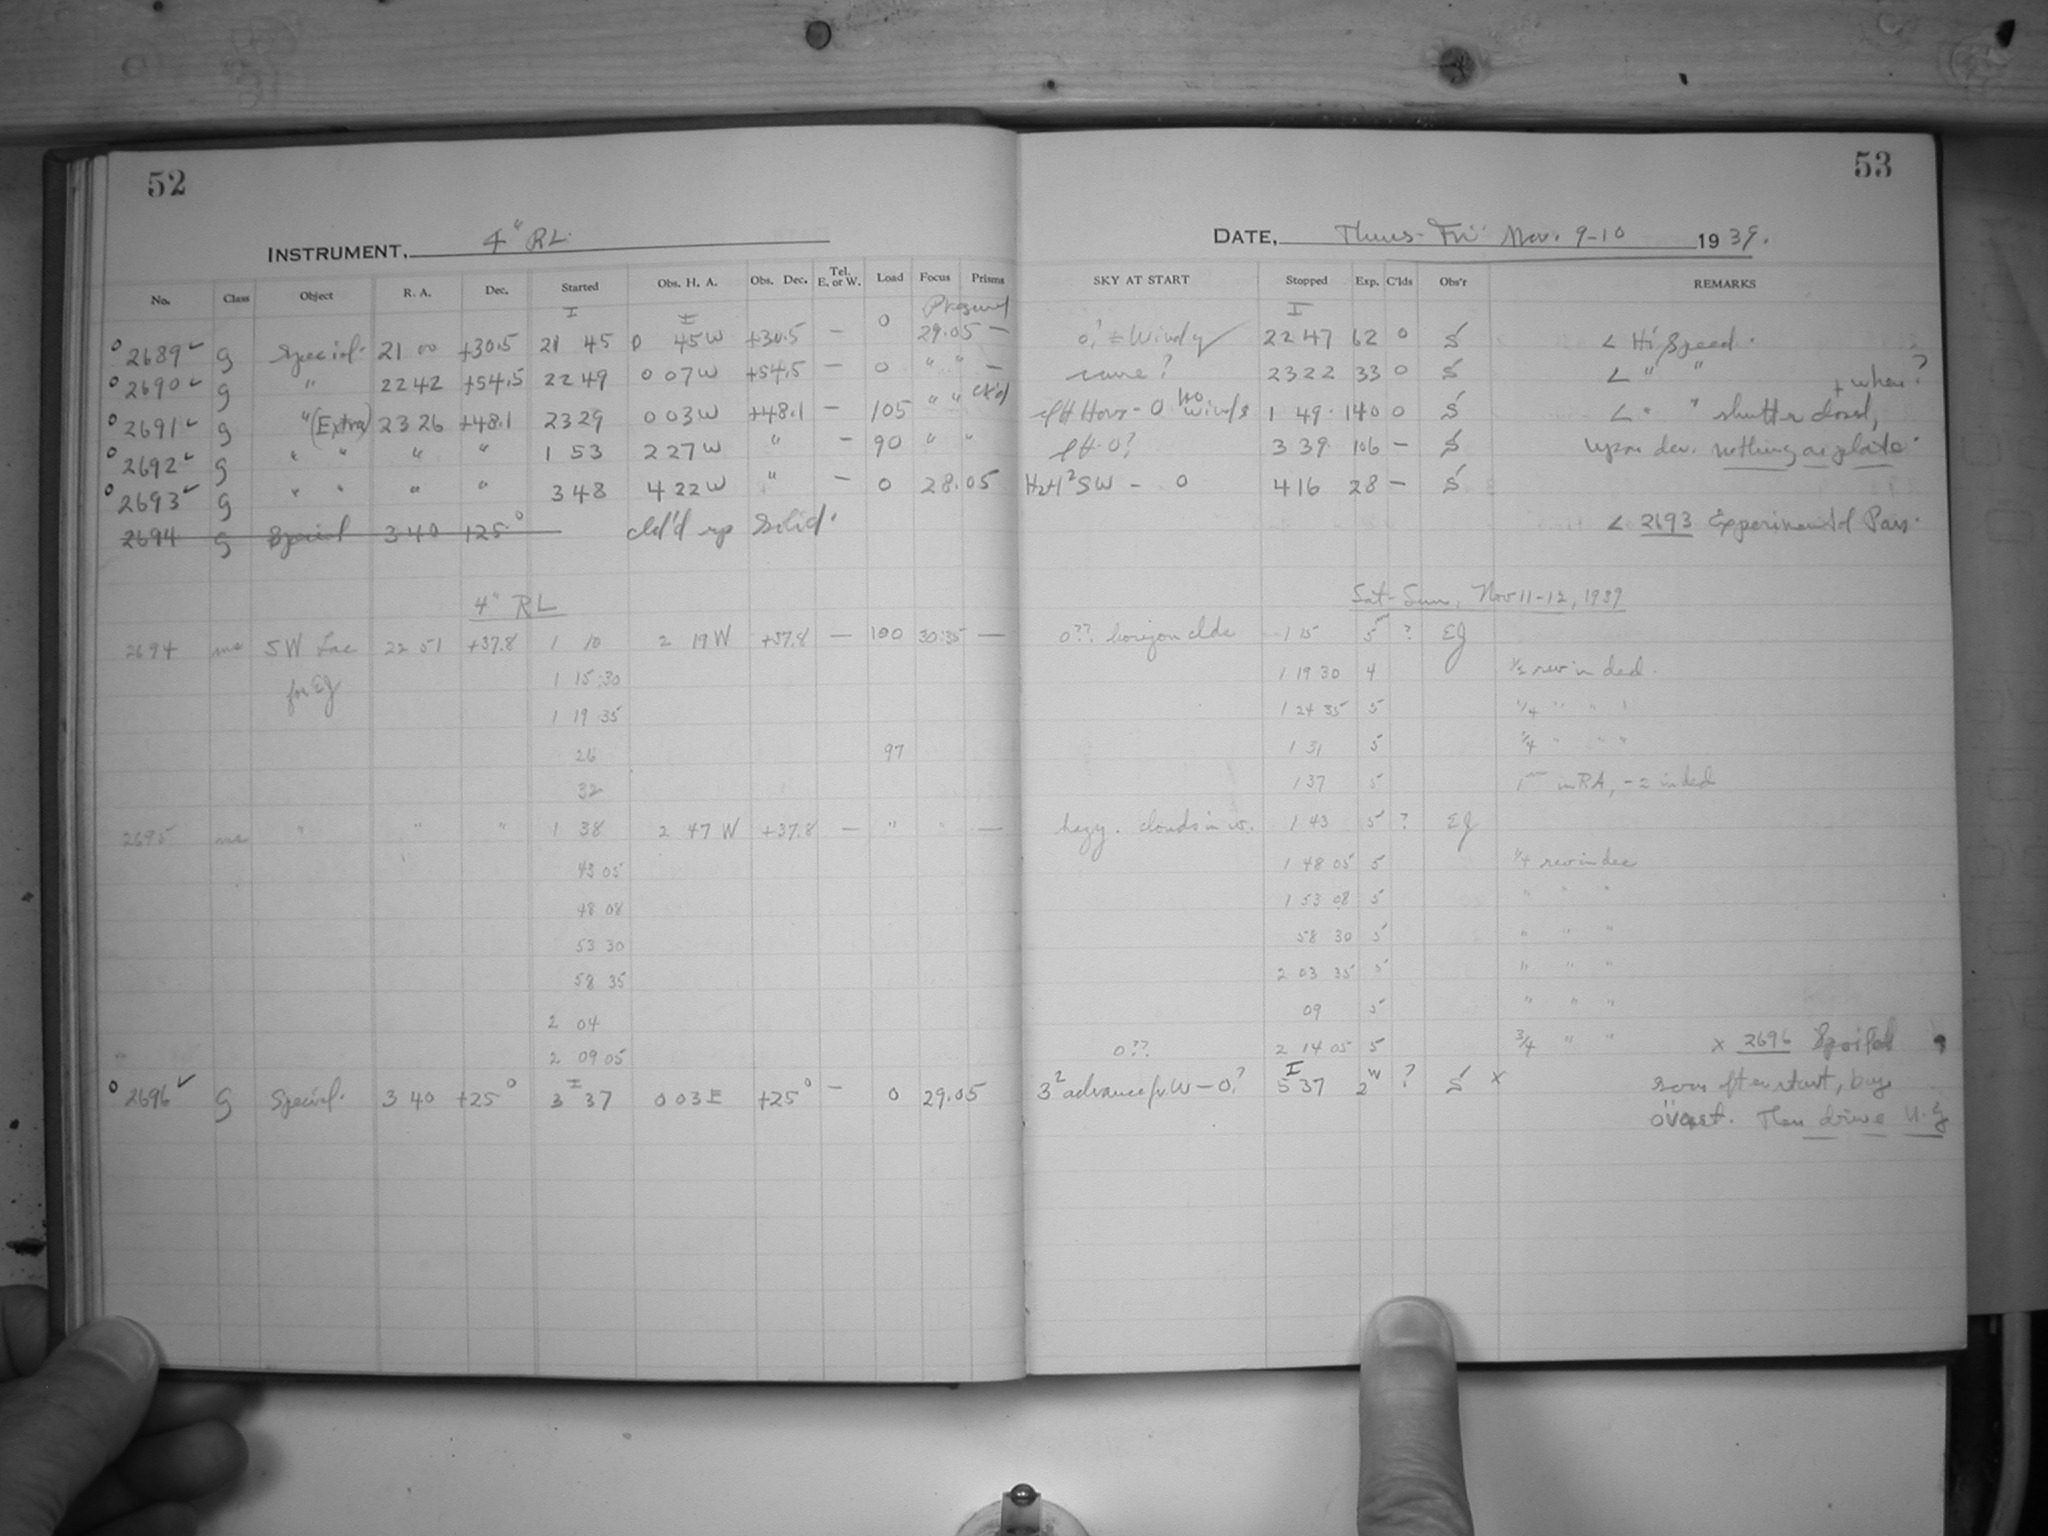 52
53
INSTRUMENT, 4" RL.
DATE, Thurs-Fri Nov. 9-10 1939.
No. Class Object R. A. Dec. Started Obs. H. A. Obs. Dec. Tel. E. or W. Load Focus Prisms SKY AT START Stopped Exp. C'lds Obs'r REMARKS
2689 g Special 21 00 +30.5 21 45 0 45W +30.5 — 0 29.05 — Windy 22 47 62 0 S < Hi Speed.
2690 g " 22 42 +54.5 22 49 0 07W +54.5 — 0 " " — same? 23 22 33 0 S < " "
2691 g " (Extra) 23 26 +48.1 23 29 0 03W +48.1 — 105 " " 1 49 140 0 S < " " shutter closed, + when?
2692 g " " " " 1 53 2 27W " — 90 " " 3 39 106 — S upon dev. nothing on plate.
2693 g " " " " 3 48 4 22W " — 0 28.05 H2H² SW - 0 4 16 28 — S
2694 g Special 3 40 +25° cld'd up solid. < 2693 Experimental Pan.
4" RL Sat-Sun, Nov 11-12, 1939
2694 ms SW Lac 22 51 +37.8 1 10 2 19W +37.8 — 100 30.35 — 0?? horizon clds 1 15 5 ? EJ
for EJ 1 15 30 1 19 30 4 ½ rev in decl.
1 19 35 1 24 35 5 ¼ " " "
26 97 1 31 5 ¼ " " "
32 1 37 5 in RA, -2 in decl
2695 ms " " " 1 38 2 47 W +37.8 — " " — hazy. clouds in w. 1 43 5 ? EJ
43 05 1 48 05 5 ¼ rev in dec
48 08 1 53 08 5 " " "
53 30 58 30 5 " " "
58 35 2 03 35 5 " " "
2 04 09 5 " " "
2 09 05 0?? 2 14 05 5 ¾ " " x 2696 Spoiled
2696 g Special. 3 40 +25° 3 37 0 03E +25° — 0 29.05 3² advance fr. W - 0? 5 37 2 ? S x soon after start, by
Then drive N.G